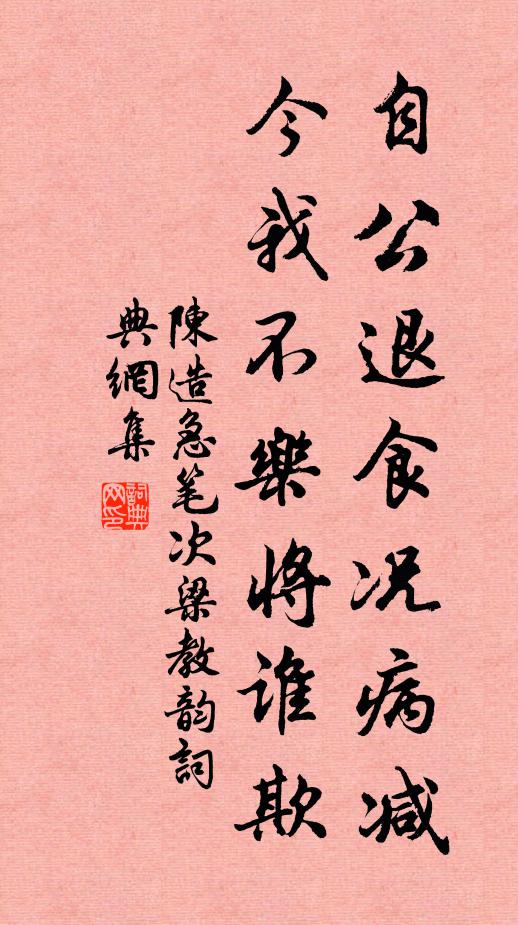 自公退食况病减
今我不樂將谁欺
陳造急笔次梁教韵詞
典網集
詞典
网印